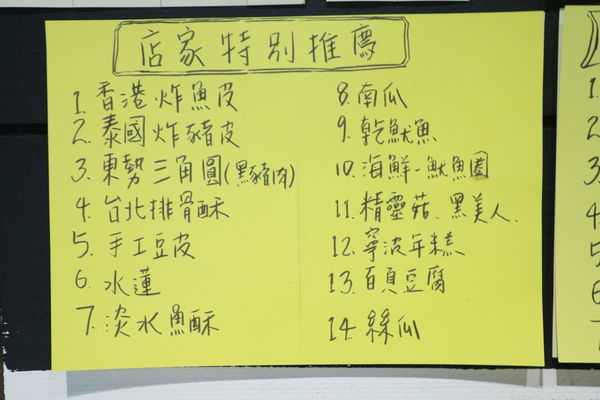 店家特別推薦
1. 香港炸魚皮
2. 泰國炸豬皮
3. 東勢三角圓(黑豬肉)
4. 台北排骨酥
5. 手工豆皮
6. 水蓮
7. 淡水魚酥
8. 南瓜
9. 乾魷魚
10. 海鮮-魷魚圈
11. 精靈菇、黑美人、
12. 寧波年糕
13. 百頁豆腐
14. 絲瓜